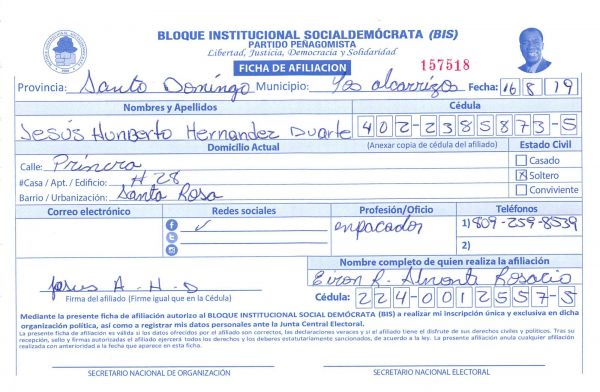 BLOQUE INSTITUCIONAL SOCIALDEMÓCRATA (BIS)
PARTIDO PEÑAGOMISTA
Libertad, Justicia, Democracia y Solidaridad
FICHA DE AFILIACION
157518
Provincia: Santo Domingo Municipio: Los alcarrizos Fecha: 16 8 19
Nombres y Apellidos Cédula
Jesús Hunberto Hernandez Duarte 402-2385873-5
Domicilio Actual (Anexar copia de cédula del afiliado) Estado Civil
Calle: Princra Casado
#Casa / Apt. / Edificio: # 28 X Soltero
Barrio / Urbanización: Santa Rosa Conviviente
Correo electrónico Redes sociales Profesión/Oficio Teléfonos
enpacador 1) 809-259-8539
2)
Nombre completo de quien realiza la afiliación
Jesus A-H-D Eiron R. Almonte Rosario
Firma del afiliado (Firme igual que en la Cédula) Cédula: 224-0012557-5
Mediante la presente ficha de afiliación autorizo al BLOQUE INSTITUCIONAL SOCIAL DEMÓCRATA (BIS) a realizar mi inscripción única y exclusiva en dicha
organización política, así como a registrar mis datos personales ante la Junta Central Electoral.
La presente ficha de afiliación es válida si los datos ofrecidos por el afiliado son correctos, las declaraciones veraces y si el afiliado tiene el disfrute de sus derechos civiles y políticos. Tras su
recepción, sello y firmas autorizadas el afiliado ejercerá todos los derechos y los deberes estatutariamente sancionados, de acuerdo a la ley. La presente afiliación anula cualquier afiliación
realizada con anterioridad a la fecha que aparece en esta ficha.
SECRETARIO NACIONAL DE ORGANIZACIÓN SECRETARIO NACIONAL ELECTORAL